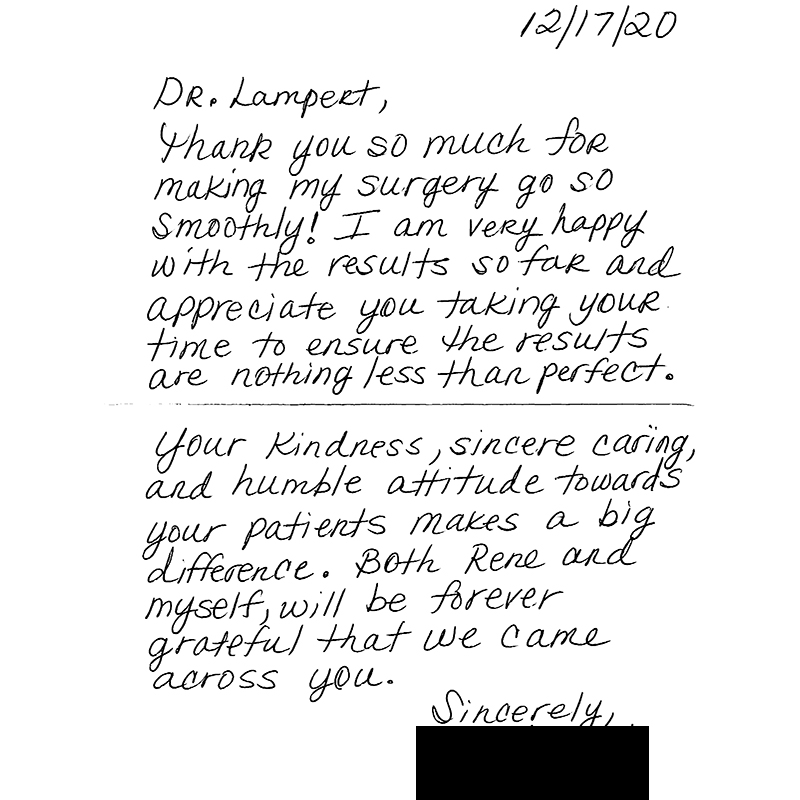 12/17/20
Dr. Lampert,
Thank you so much for
making my surgery go so
smoothly! I am very happy
with the results so far and
appreciate you taking your
time to ensure the results
are nothing less than perfect.
Your kindness, sincere caring,
and humble attitude towards
your patients makes a big
difference. Both Rene and
myself, will be forever
grateful that we came
across you.
Sincerely,